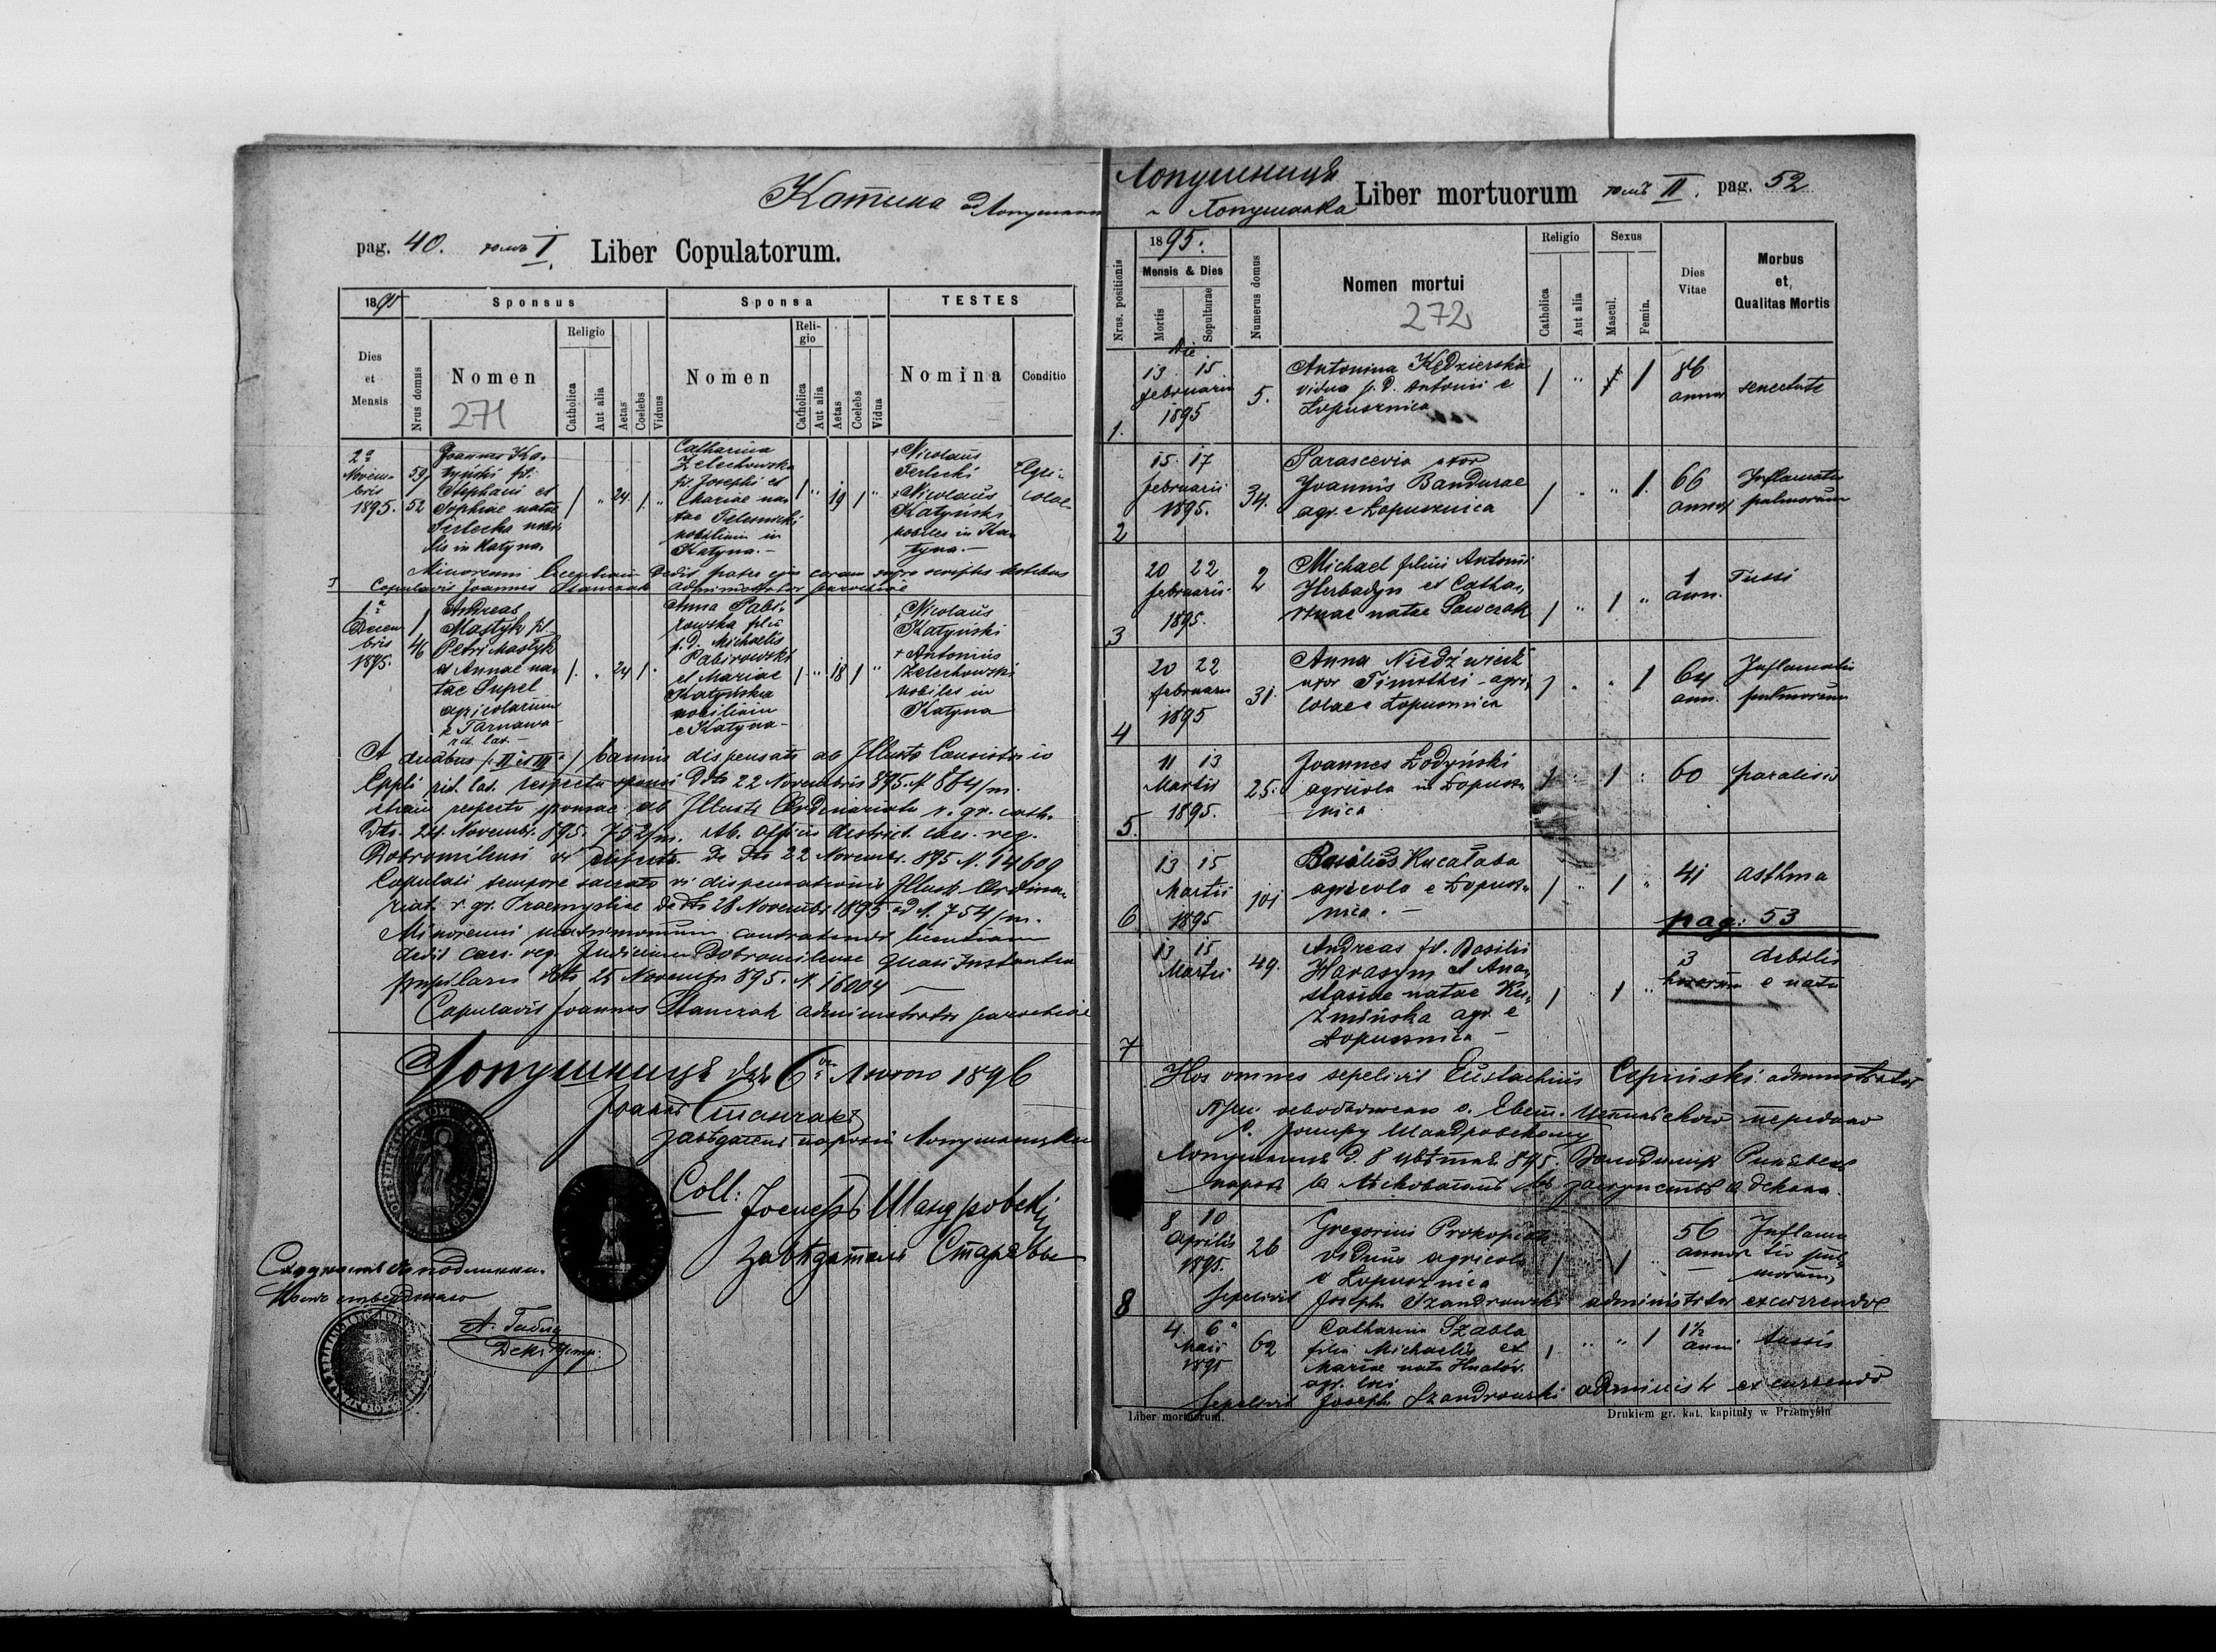 Катина ad
pag. 40. томъ I. Liber Copulatorum.
1895 Sponsus Sponsa TESTES
Dies et Mensis
Nrus domus
Nomen
271
Religio
Catholica
Aut alia
Aetas
Coelebs
Viduus
Nomen
Religio
Catholica
Aut alia
Aetas
Coelebs
Vidua
Nomina
Conditio
2a
Novem-
bris
1895.
59/
52
Joannes Ka-
tyński fil.
Stephani et
Sophiae natae
Terlecka nobi-
lis in Katyna.
/ " 24 /. "
Catharina
Zelechowska
fil. Josephi et
Mariae na-
tae
nobilium in
Katyna. -
/ " 19 / "
+ Nicolaus
Terlecki
+ Nicolaus
Katyński
nobiles in Ka-
tyna. -
Agri-
colae
Minorenni licentiam dedit pater ejus coram supra scriptis testibus
Copulavit Joannes Stanczak administrator parochiae
1a
Decem
bris
1895.
1/
46
Andreas
Mastyk fil.
Petri Mastyk
et Annae na-
tae Pupel
agricolarum
e Tarnawa
rit. lat. -
/. " 24 / .
Anna Pabi-
rowska filia
p. d. Michaelis
Pabirowski
et Mariae
Katyńska
nobilium
e Katyna -
/ " 18 / "
Nicolaus
Katyński
+ Antonius
Zelechowski
nobiles in
Katyna
A duabus /: II et III :/ bannis dispensati ab Illustr Consistorio
Eppli rit. lat. respectu sponsi ddto 22 Novembris 895. N 884/m.
etiam respectu sponsae ab Illustr Ordinariatu r. gr. cath.
Dto. 24. Novemb. 895. 752/m. Ab. officio district. caes. reg.
Dobromilensi de dto 22 Novembr. 895 N. 14609
Copulati tempore sacrato vi dispensationis Illustr Ordina-
riat. r. gr. Praemysliae de dto 28 Novembr 1895 ad N. 754/m.
Minorenni matrimonium contrahendi licentiam
dedit caes. reg. Judicium Dobromilense quasi Instantia
pupilaris dto 25 Novembr 895. N. 16004 —
Copulavit Joannes Stanczak administrator parochiae
Лопушниця дня 6. Лютого 1896
Іоаннъ Станчакъ
завѣдатель парохіи
Coll: Іосифъ Шандровскій
завѣдатель
Старявы
Лопушниця
Лопушанка
Liber mortuorum томъ II. pag. 52
Nrus. positionis
1895.
Mensis & Dies
Mortis
Sepulturae
Numerus domus
Nomen mortui
272
Religio
Catholica
Aut alia
Sexus
Mascul.
Femin.
Dies
Vitae
Morbus
et
Qualitas Mortis
1.
Die
13 15
februarii
1895
5.
Antonina Kędzierska
vidua p. d. Antonii e
Łopusznica
/ " /
86
annor
senectute
2
15. 17
februarii
1895.
34.
Parascevia uxor
Joannis Bandurae
agr. e Łopusznica
/ " " /.
66
annor
Inflamatio
pulmorum
3
20 22
februarii
1895.
2
Michael filius Antonii
Herbadyn et Catha-
rinae natae Sawczak
/ " / "
1
ann.
Tussi
4
20 22
februarii
1895
31.
Anna Niedźwiedź
uxor Timothei - agri-
colae e Łopusznica
/ " " /
64
ann.
Inflamatio
pulmorum
5.
11 13
Martii
1895.
25.
Joannes Łodyński
agricola in Łopusz-
nica
/ " / "
60
paralisis
6
13 15
Martii
1895
101
Basilius Kucałaba
agricola e Łopusz-
nica. -
/ " / "
41
asthma
pag: 53
7
13 15
Martii
49.
Andreas fil. Basilii
Harasym et Ana-
stasiae natae Ku-
źmińska agr. e
Łopusznica -
/ / "
3
horarum
debilis
e natu
Hos omnes sepelivit Eustachius Cepiński administrator
8
8 10
Aprilis
1895.
26
Gregorius Prokopiak
viduus agricola
e Łopusznica
/ /
56
annor
Inflama
tio pul-
morum
Sepelivit Joseph Szandrowski administrator excurrendo
4 6
Maii
1895
62
Catharina Szabla
filia Michaelis et
Mariae nata Hnatów.
agr. loci
/. " " /
1 1/2
anni
tussis
Sepelivit Joseph Szandrowski administr excurrendo
Liber mortuorum.
Drukiem gr. kat. kapituły w Przemyślu